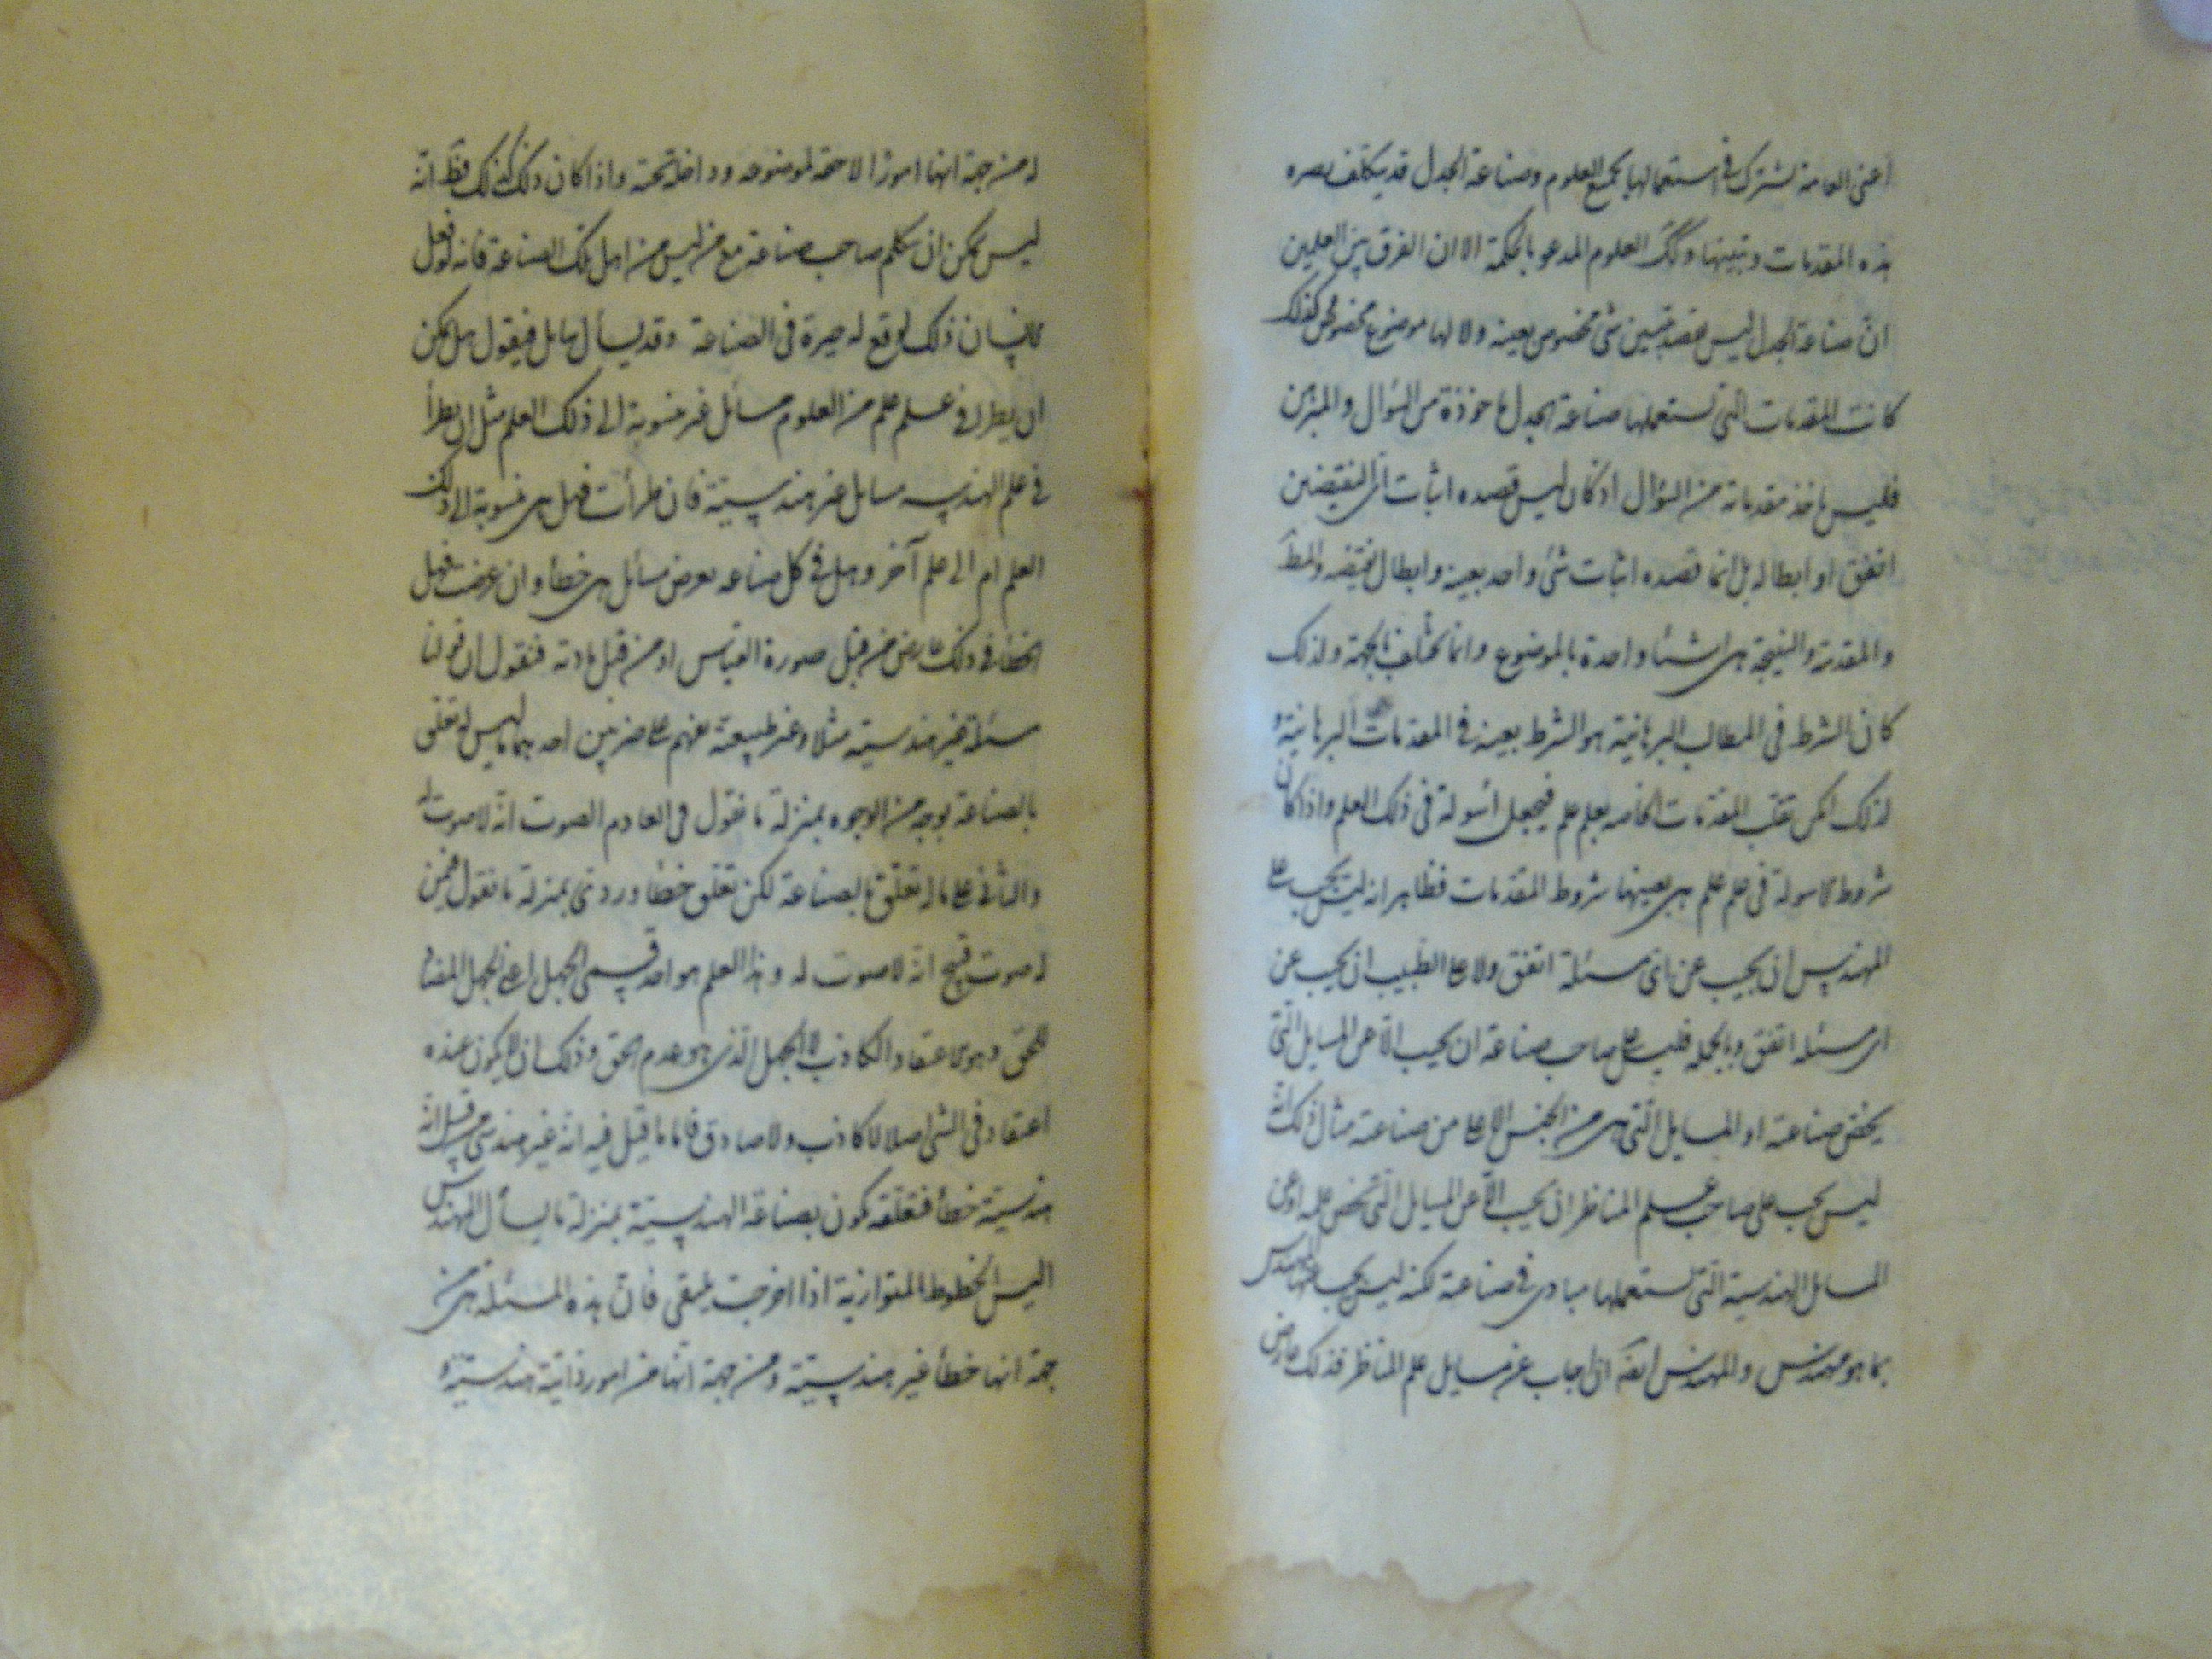 اعنى العامة تشترك فى استعمالها بجميع العلوم وصناعة الجدل قد يتكلف نصره
هذه المقدمات وتبينها وتلك العلوم المدعو بالحكمة الا ان الفرق بين العلمين
ان صناعة الجدل ليس يقصد تبيين شئ مخصوص بعينه ولا لها موضوع مخصوص كذلك
كانت المقدمات التى تستعملها صناعة الجدل ماخوذة من السؤال والمبرهن
فليس ياخذ مقدماته من السؤال اذ كان ليس قصده اثبات اى النقيضين
اتفق او ابطاله بل انما قصده اثبات شئ واحد بعينه وابطال نقيضه والمط
والمقدمة والنتيجة هى اشياء واحدة بالموضوع وانما تختلف بالجهة ولذلك
كان الشرط فى المطالب البرهانية هو الشرط بعينه فى المقدمات البرهانية و
لذلك امكن تقلب المقدمات الخاصة بعلم علم فيجعل اسولة فى ذلك العلم واذا كان
شروط الاسولة فى علم علم هى بعينها شروط المقدمات فظاهر انه ليس يجب على
المهندس ان يجيب عن اى مسئلة اتفق ولا على الطبيب ان يجيب عن
اى مسئلة اتفق وبالجملة فليس على صاحب صناعة ان يجيب الا عن المسايل التى
يخص صناعته او المسايل التى هى من الجنس الاعلى من صناعته مثال ذلك انه
ليس يجب على صاحب علم المناظر ان يجيب الا عن المسايل التى تخص علمه او عن
المسايل الهندسية التى تستعملها مبادى فى صناعة لكنه ليس يجب عنها المهندس
بما هو مهندس والمهندس ايضه ان اجاب عن مسايل علم المناظر فذلك عارض
له من جهة انها امور الاحقة لموضوعه وداخلة تحته واذا كان ذلك كذلك فظ انه
ليس يمكن ان يتكلم صاحب صناعة مع من ليس من اهل تلك الصناعة فانه لو فعل
ذلك لوقع له حيرة فى الصناعة وقد يسأل سايل فيقول هل يمكن
ان يطرأ فى علم علم من العلوم مسائل غير منسوبة الى ذلك العلم مثل ان يطرأ
فى علم الهندسه مسايل غير هندسية فان طرأت فهل هى منسوبة الى ذلك
العلم ام الى علم آخر وهل فى كل صناعه يعرض مسائل هى خطأ وان عرضت فهل
الخطأ فى ذلك عارض من قبل صورة القياس او من قبل مادته فنقول ان قولنا
مسئلة غير هندسية مثلا وغير طبيعية يفهم على ضربين احدهما ما ليس له تعلق
بالصناعة بوجه من الوجوه بمنزلة ما نقول فى العادم الصوت انه لا صوت له
والثانى على ما له تعلق بالصناعة لكن تعلق خطأ وردى بمنزلة ما نقول فيمن
له صوت قبيح انه لا صوت له وهذا العلم هو احد قسمى الجهل اعنى الجهل المضاد
للحق وهو الاعتقاد الكاذب لا الجهل الذى هو عدم الحق وذلك ان لا يكون عنده
اعتقاد فى الشئ اصلا لا كاذب ولا صادق فاما ما قيل فيه انه غير هندسى من قبل انه
هندسية خطأ فتعلقه يكون بصناعة الهندسية بمنزلة ما يسأل المهندس
اليس الخطوط المتوازية اذا اخرجت يلتقى فان هذه المسئلة هى من
جهة انها خطأ غير هندسية ومن جهة انها من امور ذاتية هندسية و